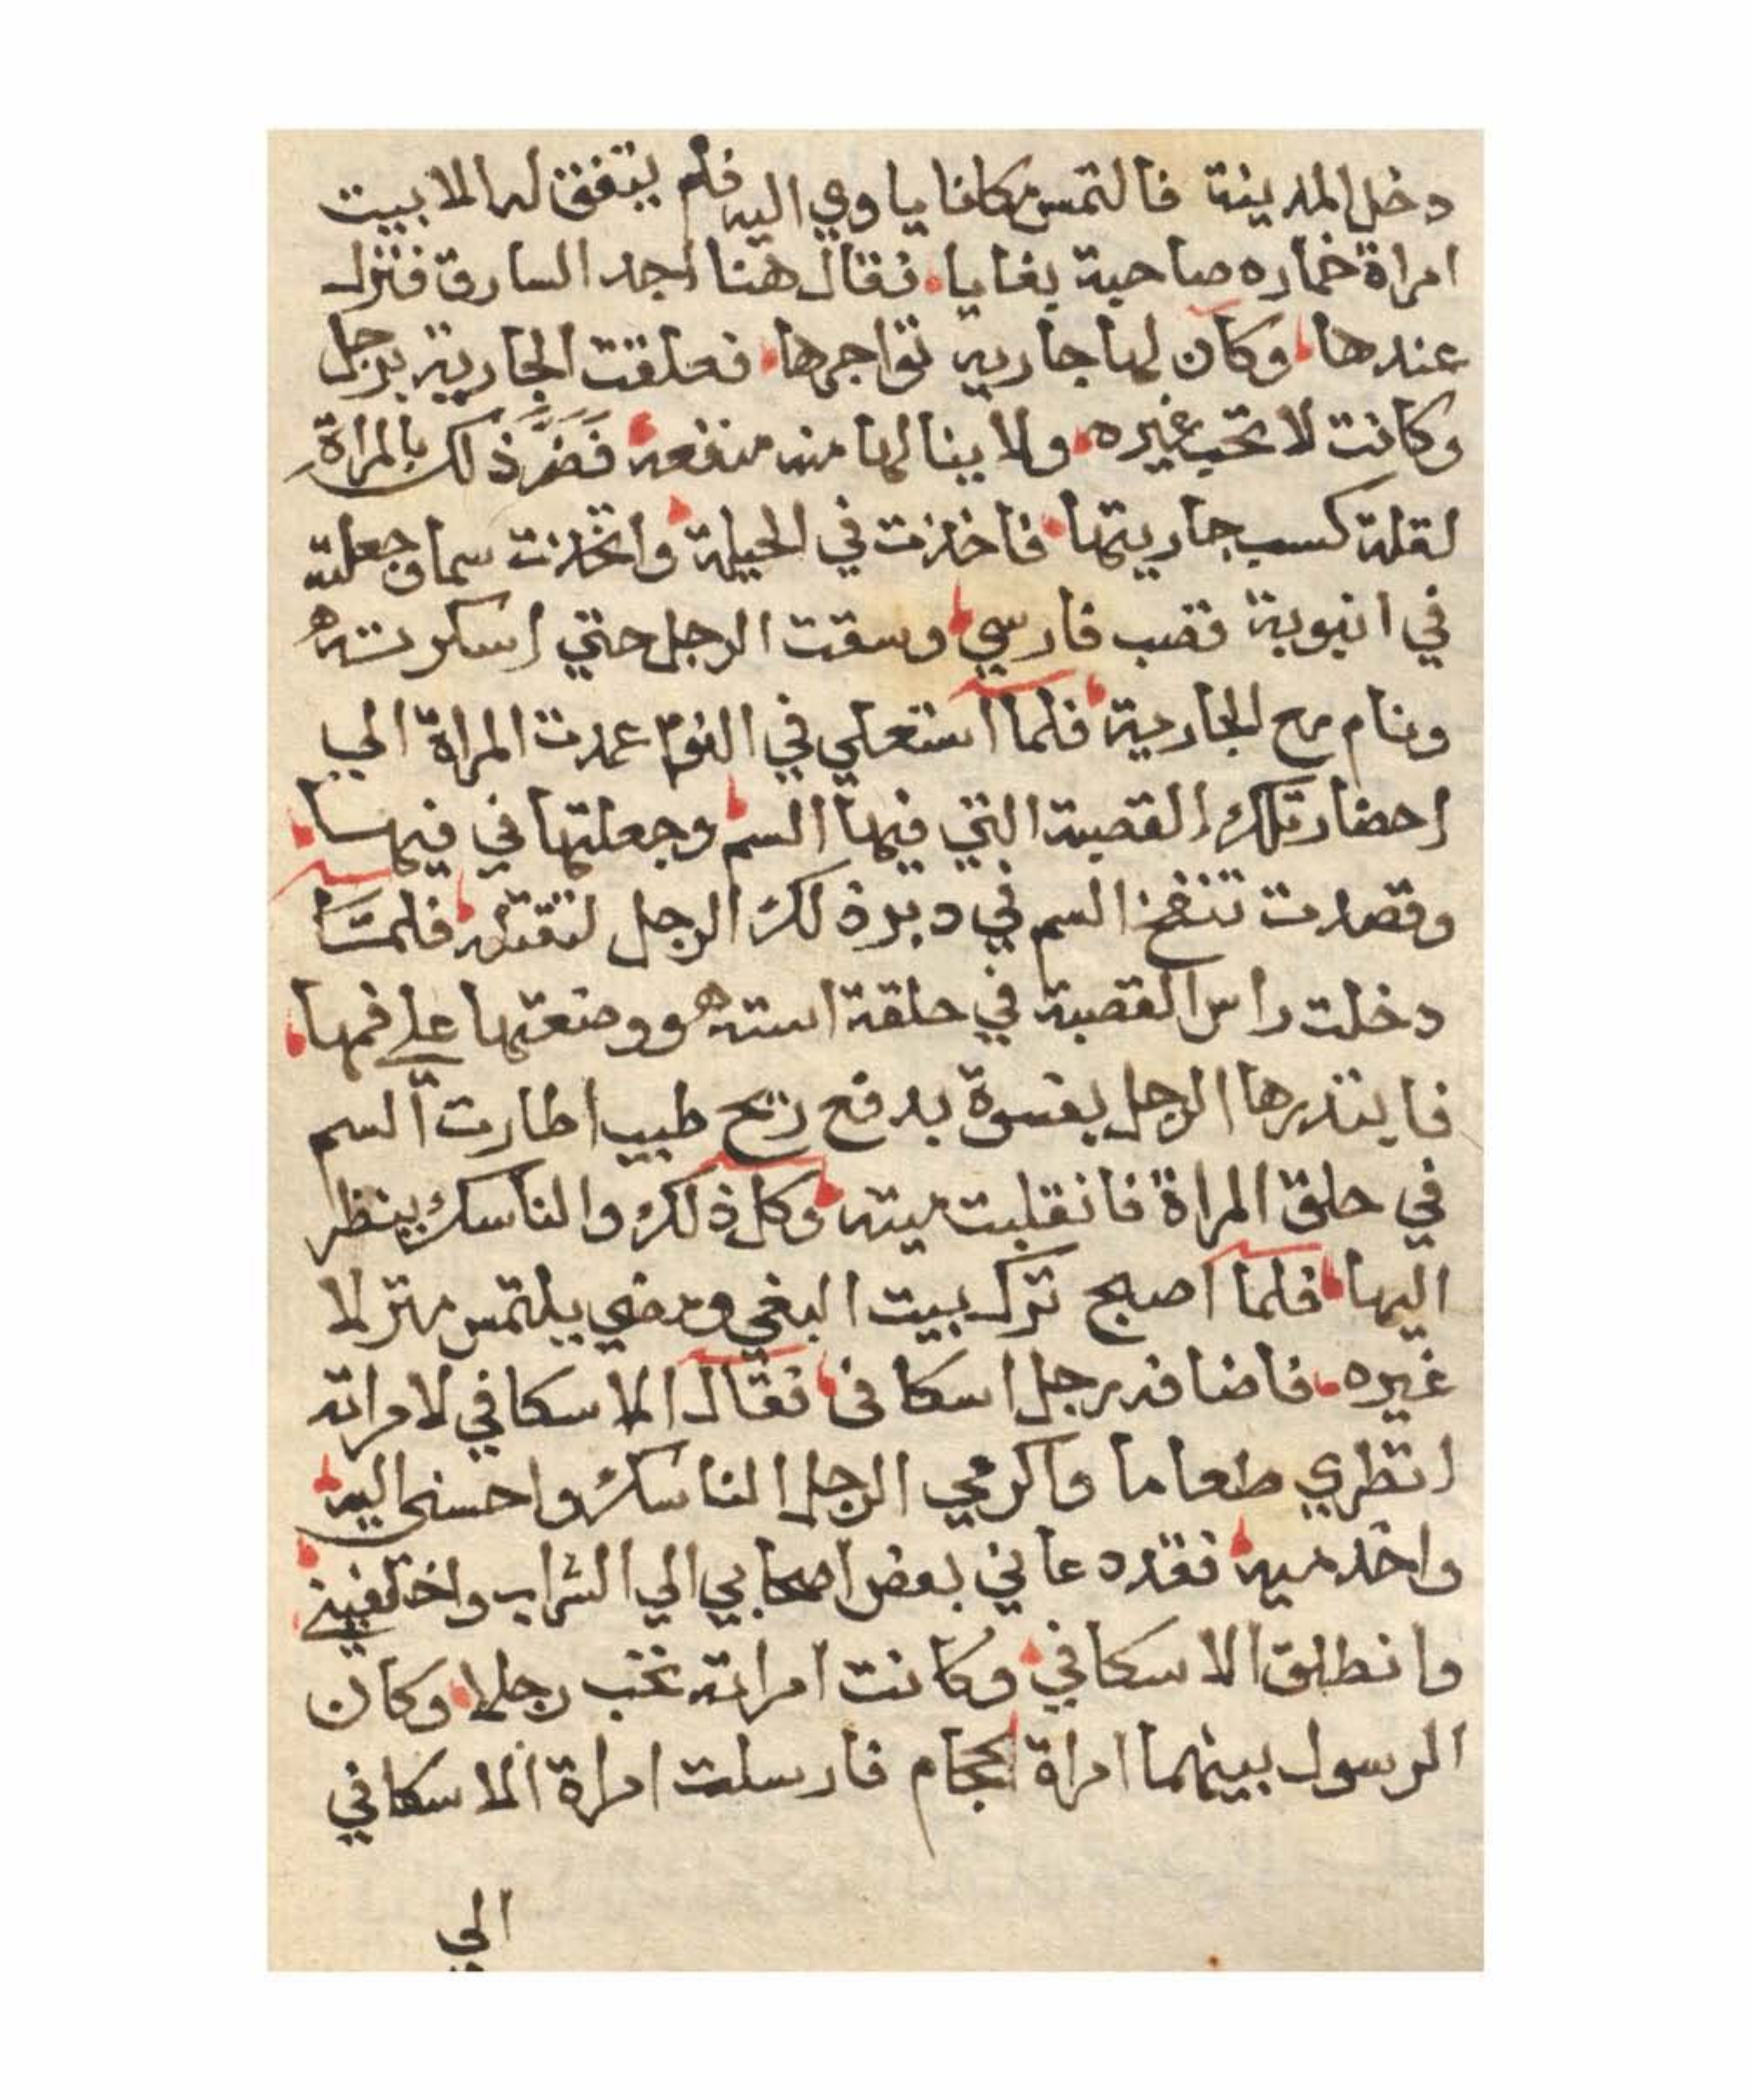 دخل المدينة فالتمس مكانا ياوي اليه فلم يتفق له الا بيت
امراة خماره صاحبة بغايا فقال هنا اجد السارق فنزل
عندها وكان لها جاريه تواجرها فعلقت الجارية برجل
وكانت لا تحب غيره ولا ينالها منه منفعه فَضَرَّ ذلك بالمراة
لقلة كسب جاريتها فاخذت في الحيلة واتخذت سما وجعلته
في انبوبة قصب فارسي وسقت الرجل حتي اسكرته
ونام مع الجارية فلما استعلي في النوم عمدت المراة الي
احضار تلك القصبة التي فيها السم وجعلتها في فيها
وقصدت تنفخ السم في دبر ذلك الرجل لتقتله فلما
دخلت راس القصبة في حلقة استه ووضعتها علي فمها
فابتدرها الرجل بفسوة بدفع ريح طيب اطارت السم
في حلق المراة فانقلبت ميته وكل ذلك والناسك ينظر
اليها فلما اصبح ترك بيت البغي ومضي يلتمس منزلا
غيره فاضافه رجل اسكافي فقال الاسكافي لامراته
انظري طعاما واكرمي الرجل الناسك واحسني اليه
واخدميه فقد دعاني بعض اصحابي الي الشراب
وانطلق الاسكافي وكانت امراته تحب رجلا وكان
الرسول بينهما امراة الحجام فارسلت امراة الاسكافي
الي